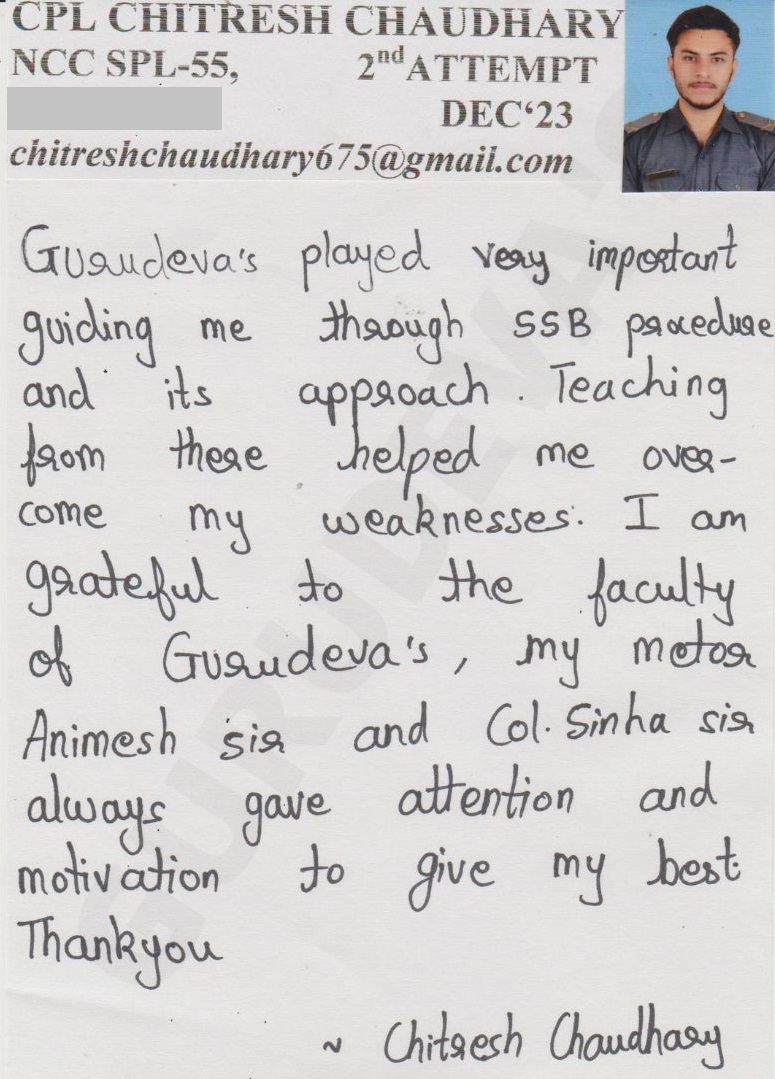 CPL CHITRESH CHAUDHARY
NCC SPL-55, 2nd ATTEMPT
DEC‘23
chitreshchaudhary675@gmail.com
Gurudeva's played very important
guiding me through SSB procedure
and its approach. Teaching
from there helped me over-
come my weaknesses. I am
grateful to the faculty
of Gurudeva's, my metor
Animesh sir and Col. Sinha sir
always gave attention and
motivation to give my best.
Thankyou
~ Chitresh Chaudhary
GURUDEVA'S